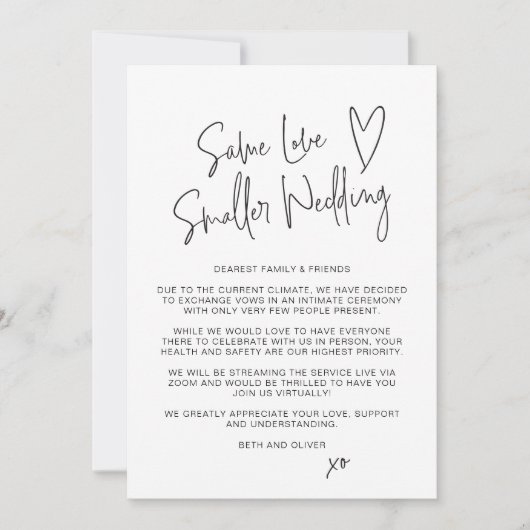 Same Love
Smaller Wedding
DEAREST FAMILY & FRIENDS
DUE TO THE CURRENT CLIMATE, WE HAVE DECIDED
TO EXCHANGE VOWS IN AN INTIMATE CEREMONY
WITH ONLY VERY FEW PEOPLE PRESENT.
WHILE WE WOULD LOVE TO HAVE EVERYONE
THERE TO CELEBRATE WITH US IN PERSON, YOUR
HEALTH AND SAFETY ARE OUR HIGHEST PRIORITY.
WE WILL BE STREAMING THE SERVICE LIVE VIA
ZOOM AND WOULD BE THRILLED TO HAVE YOU
JOIN US VIRTUALLY!
WE GREATLY APPRECIATE YOUR LOVE, SUPPORT
AND UNDERSTANDING.
BETH AND OLIVER
xo